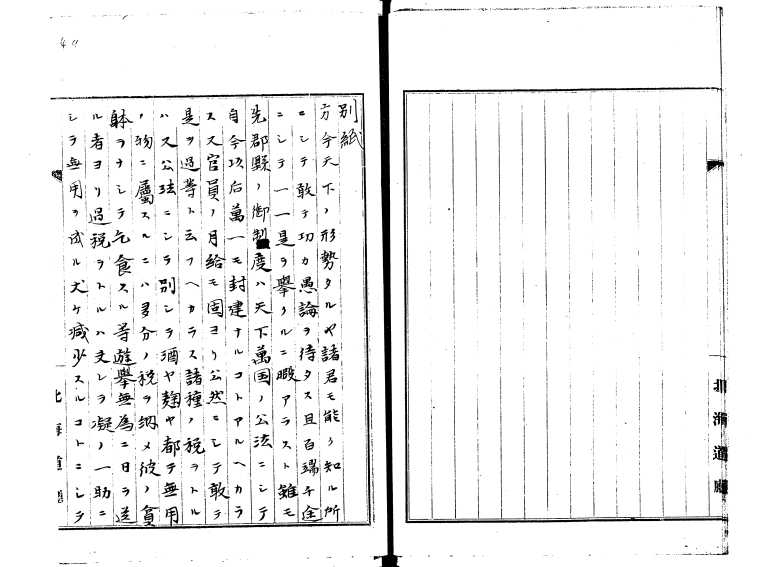 北海道廳
別紙
方今天下ノ形勢タルヤ諸君モ能ク知ル所
ニシテ敢テ功カ愚論ヲ待タス且百端千途
ニシテ一一是ヲ擧クルニ暇アラスト雖モ
先郡縣ノ御制度ハ天下萬国ノ公法ニシテ
自今功后萬一モ封建ナルコトアルヘカラ
スス官員ノ月給モ固ヨリ公然ニシテ敢テ
是ヲ過等ト云フヘカラス諸種ノ税ヲトル
ハス公法ニシテ別シテ酒ヤ麹ヤ都テ無用
ノ物ニ屬スルニハ多分ノ税ヲ納メ彼ノ貧
躰ヲナシテ乞食スル等遊擧無為ニ日ヲ送
ル者ヨリ過税ヲトルハ又レヲ凝ノ一助ニ
シテ無用ヲ成ル丈ケ減少スルコトニシテ
北海道廳